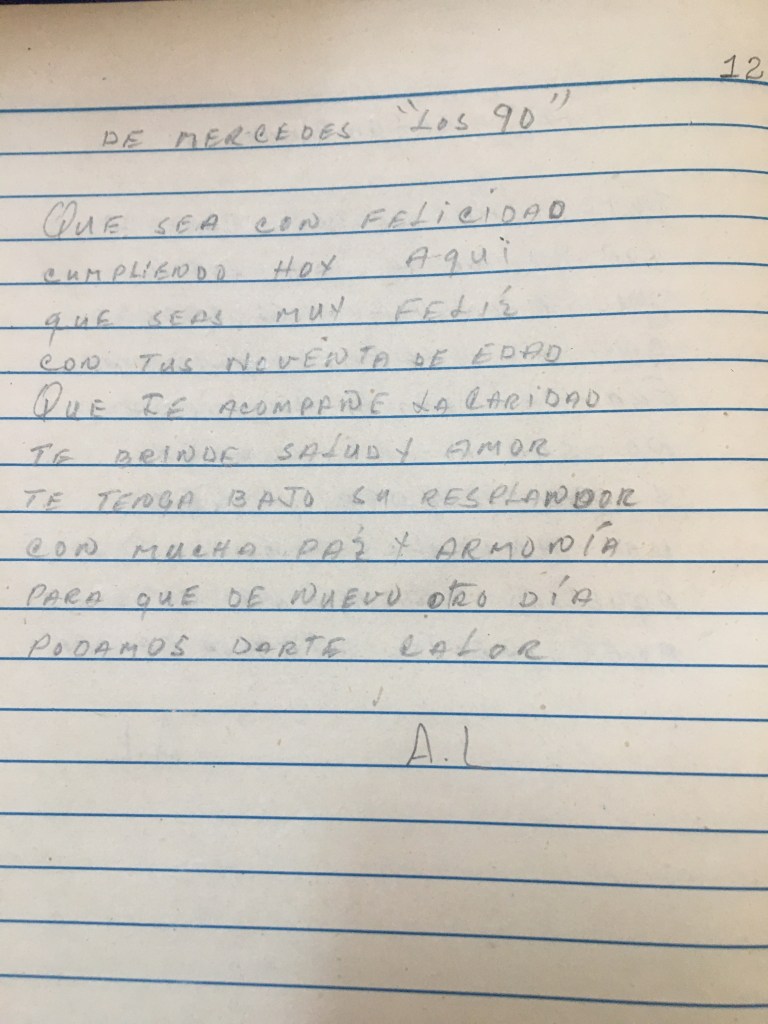 12
DE MERCEDES "LOS 90"
QUE SEA CON FELICIDAD
CUMPLIENDO HOY AQUÍ
QUE SEAS MUY FELÍZ
CON TUS NOVENTA DE EDAD
QUE TE ACOMPAÑE LA CARIDAD
TE BRINDE SALUD Y AMOR
TE TENGA BAJO SU RESPLANDOR
CON MUCHA PÁZ Y ARMONÍA
PARA QUE DE NUEVO OTRO DÍA
PODAMOS DARTE CALOR
A.L